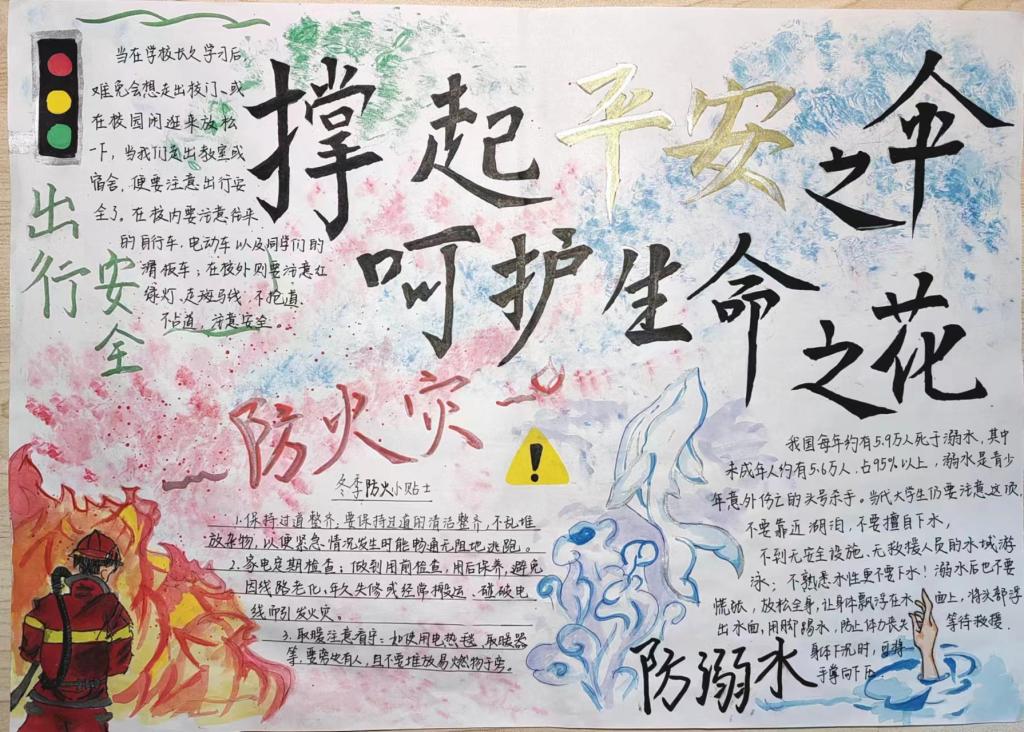 撑起平安之伞
呵护生命之花
出行安全
当在学校长久学习后,
难免会想走出校门、或
在校园闲逛来放松
一下,当我们走出教室或
宿舍,便要注意出行安
全了。在校内要注意往来
的自行车、电动车以及同学们的
滑板车;在校外则要注意红
绿灯、走斑马线,不抢道、
不占道,注意安全。
防火灾
冬季防火小贴士
1.保持过道整齐,要保持过道的清洁整齐,不乱堆
放杂物,以便紧急情况发生时能畅通无阻地逃跑。
2.家电定期检查:做到用前检查,用后保养,避免
因线路老化,年久失修或经常搬运、磕破电
线而引发火灾。
3.取暖注意看守:如使用电热毯、取暖器
等,要旁边有人,且不要堆放易燃物于旁。
我国每年约有5.9万人死于溺水,其中
未成年人约有5.6万人,占95%以上,溺水是青少
年意外伤亡的头号杀手。当代大学生仍要注意这项,
不要靠近湖泊,不要擅自下水,
不到无安全设施、无救援人员的水域游
泳;不熟悉水性更不要下水!溺水后也不要
慌张,放松全身,让身体飘浮在水面上,将头部浮
出水面,用脚踢水,防止体力丧失,等待救援.
身体下沉时,可将
手掌向下压.
防溺水